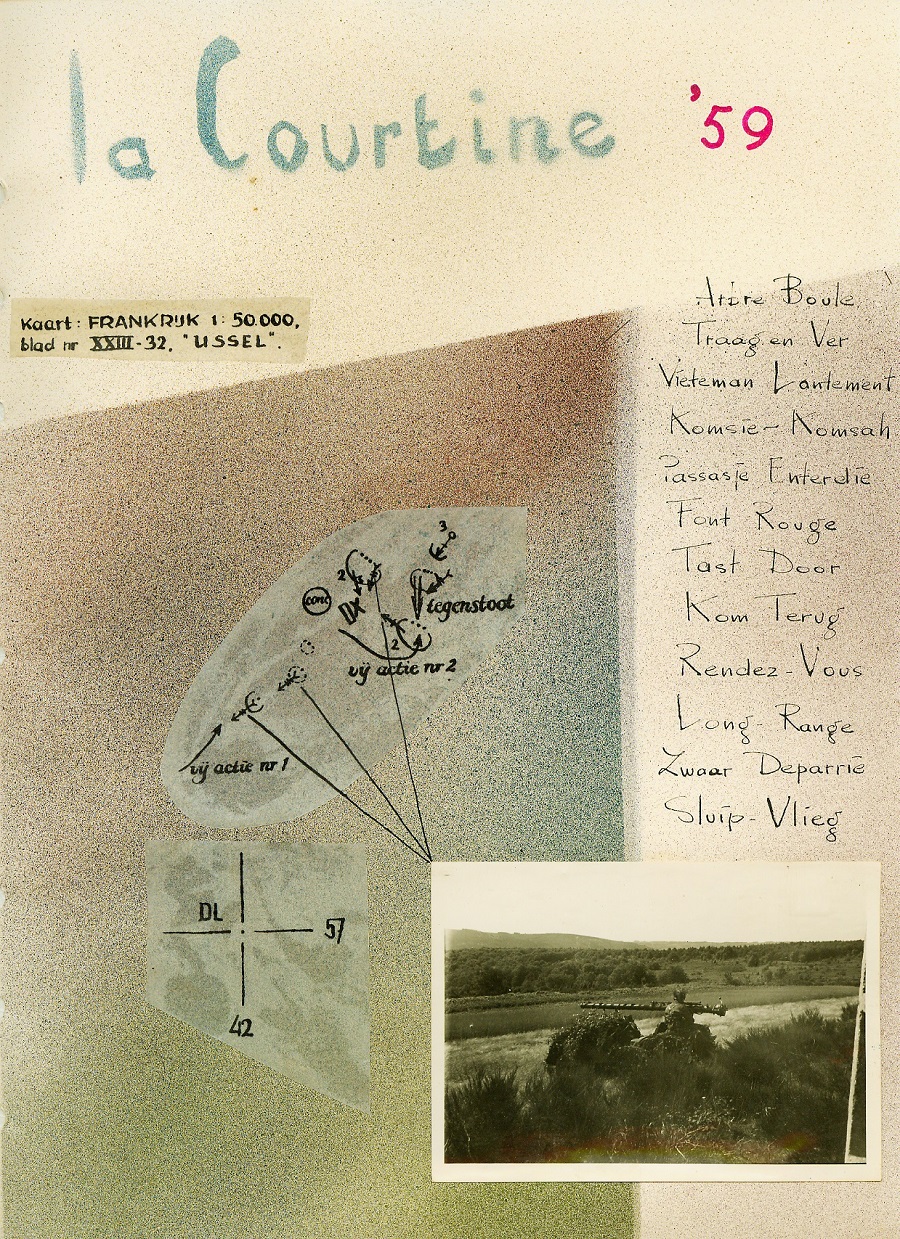 la Courtine '59
Kaart: FRANKRIJK 1:50.000,
blad nr XXIII-32, "USSEL".
Arbre Boule
Traag en Ver
Vieteman Lantement
Komsie-Komsah
Passasje Enterdie
Font Rouge
Tast Door
Kom Terug
Rendez-Vous
Long-Range
Zwaar Deparrie
Sluip-Vlieg
3
2
conc
tegenstoot
2
vij actie nr 2
vij actie nr 1
DL
57
42